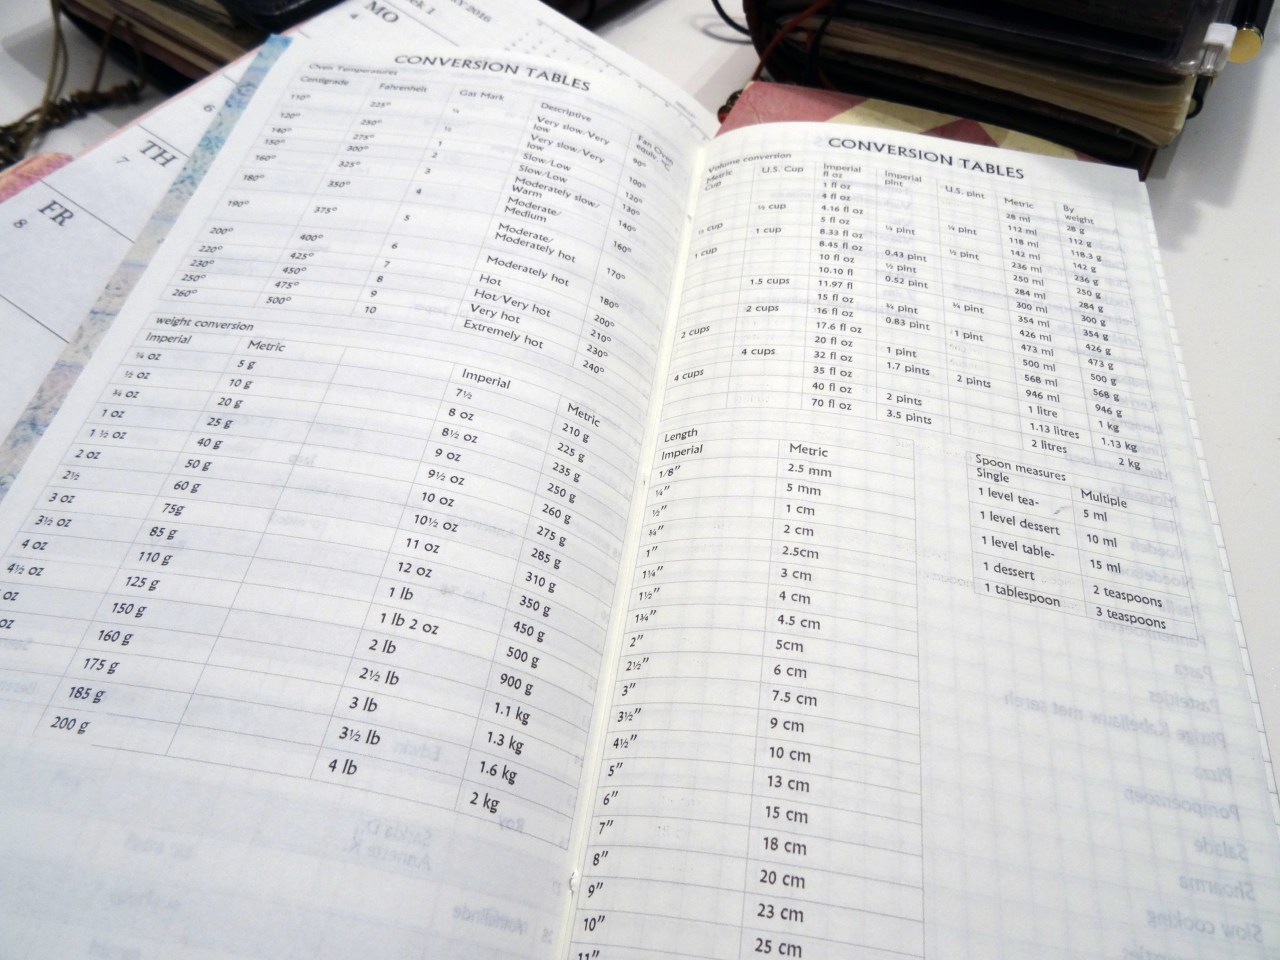 MO
4
6
TH
7
FR
8
CONVERSION TABLES
Oven Temperatures
Centigrade Fahrenheit Gas Mark Descriptive Fan Oven equiv. °C
110° 225° ¼ Very slow/Very low 90°
120° 250° ½ Very slow/Very low 100°
140° 275° 1 Slow/Low 120°
150° 300° 2 Slow/Low 130°
160° 325° 3 Moderately slow/Warm 140°
180° 350° 4 Moderate/Medium 160°
190° 375° 5 Moderate/Moderately hot 170°
200° 400° 6 Moderately hot 180°
220° 425° 7 Hot 200°
230° 450° 8 Hot/Very hot 210°
250° 475° 9 Very hot 230°
260° 500° 10 Extremely hot 240°
weight conversion
Imperial Metric Imperial Metric
¼ oz 5 g 7½ 210 g
½ oz 10 g 8 oz 225 g
¾ oz 20 g 8½ oz 235 g
1 oz 25 g 9 oz 250 g
1 ½ oz 40 g 9½ oz 260 g
2 oz 50 g 10 oz 275 g
2½ 60 g 10½ oz 285 g
3 oz 75g 11 oz 310 g
3½ oz 85 g 12 oz 350 g
4 oz 110 g 1 lb 450 g
4½ oz 125 g 1 lb 2 oz 500 g
oz 150 g 2 lb 900 g
oz 160 g 2½ lb 1.1 kg
175 g 3 lb 1.3 kg
185 g 3½ lb 1.6 kg
200 g 4 lb 2 kg
CONVERSION TABLES
Volume conversion
Metric Cup U.S. Cup Imperial fl oz Imperial pint U.S. pint Metric By weight
1 fl oz 28 ml 28 g
4 fl oz 112 ml 112 g
½ cup 4.16 fl oz 118 ml 118.3 g
5 fl oz ¼ pint ¼ pint 142 ml 142 g
½ cup 1 cup 8.33 fl oz 0.43 pint ½ pint 236 ml 236 g
1 cup 8.45 fl oz 250 ml 250 g
10 fl oz ½ pint 284 ml 284 g
10.10 fl 0.52 pint 300 ml 300 g
1.5 cups 11.97 fl 354 ml 354 g
15 fl oz ¾ pint ¾ pint 426 ml 426 g
2 cups 16 fl oz 0.83 pint 1 pint 473 ml 473 g
2 cups 17.6 fl oz 500 ml 500 g
20 fl oz 1 pint 568 ml 568 g
4 cups 32 fl oz 1.7 pints 2 pints 946 ml 946 g
4 cups 35 fl oz 1 litre 1 kg
40 fl oz 2 pints 1.13 litres 1.13 kg
70 fl oz 3.5 pints 2 litres 2 kg
Length
Imperial Metric
1/8" 2.5 mm
¼" 5 mm
½" 1 cm
¾" 2 cm
1" 2.5cm
1¼" 3 cm
1½" 4 cm
1¾" 4.5 cm
2" 5cm
2½" 6 cm
3" 7.5 cm
3½" 9 cm
4½" 10 cm
5" 13 cm
6" 15 cm
7" 18 cm
8" 20 cm
9" 23 cm
10" 25 cm
11"
Spoon measures
Single Multiple
1 level tea- 5 ml
1 level dessert 10 ml
1 level table- 15 ml
1 dessert 2 teaspoons
1 tablespoon 3 teaspoons